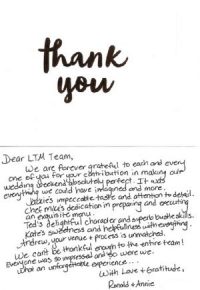 thank
you
Dear LTM Team,
We are forever grateful to each and every
one of you for your contribution in making our
wedding weekend absolutely perfect. It was
everything we could have imagined and more.
Jackie's impeccable taste and attention to detail.
Chef Mike's dedication in preparing and executing
an exquisite menu.
Ted's delightful character and superb bustle skills.
Kate's sweetness and helpfulness with everything.
Andrew, your venue + process is unmatched.
We can't be thankful enough to the entire team!
Everyone was so impressed and so were we.
What an unforgettable experience...
With Love + Gratitude,
Ronald + Annie